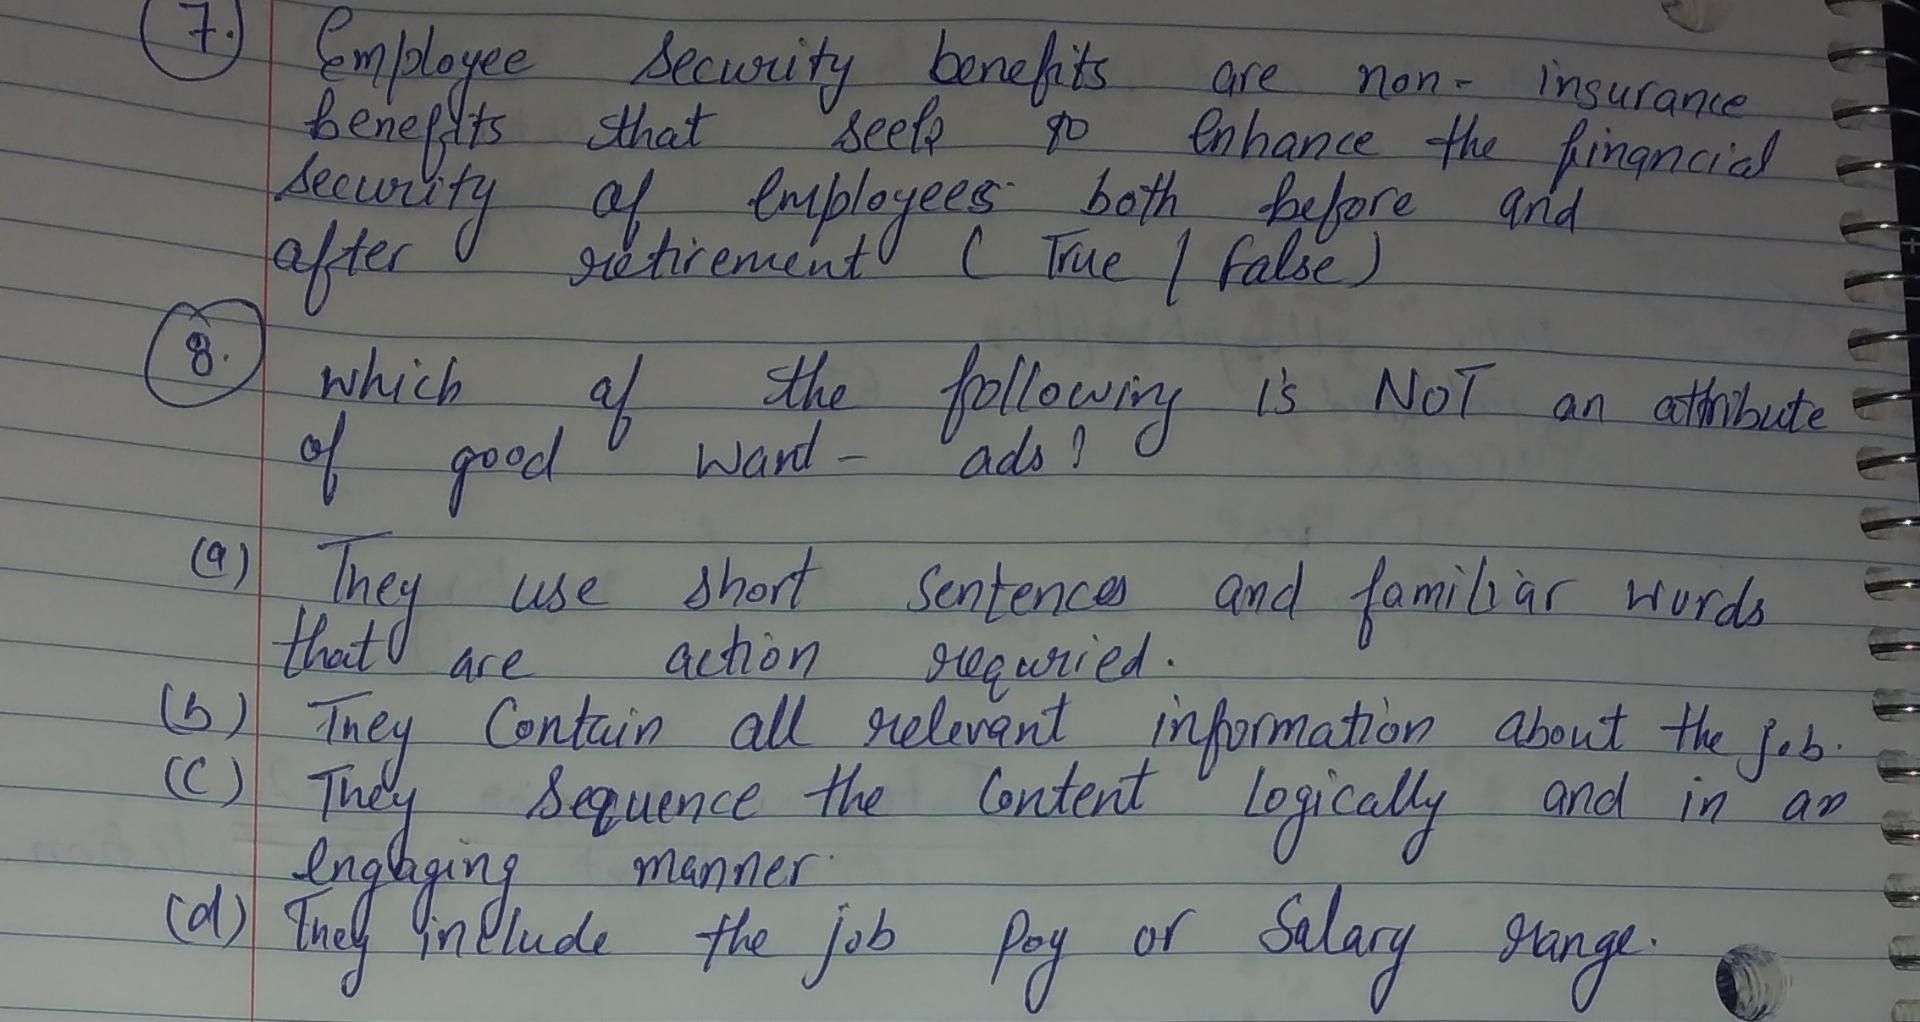 7. Employee security benefits are non- insurance
benefits that seek to enhance the financial
security of employees both before and
after retirement ( True / False )
8. which of the following is NOT an attribute
of good want - ads ?
(a) They use short sentences and familiar words
that are action requried.
(b) They contain all relevant information about the job.
(c) They sequence the content logically and in an
engaging manner.
(d) They include the job pay or salary range.